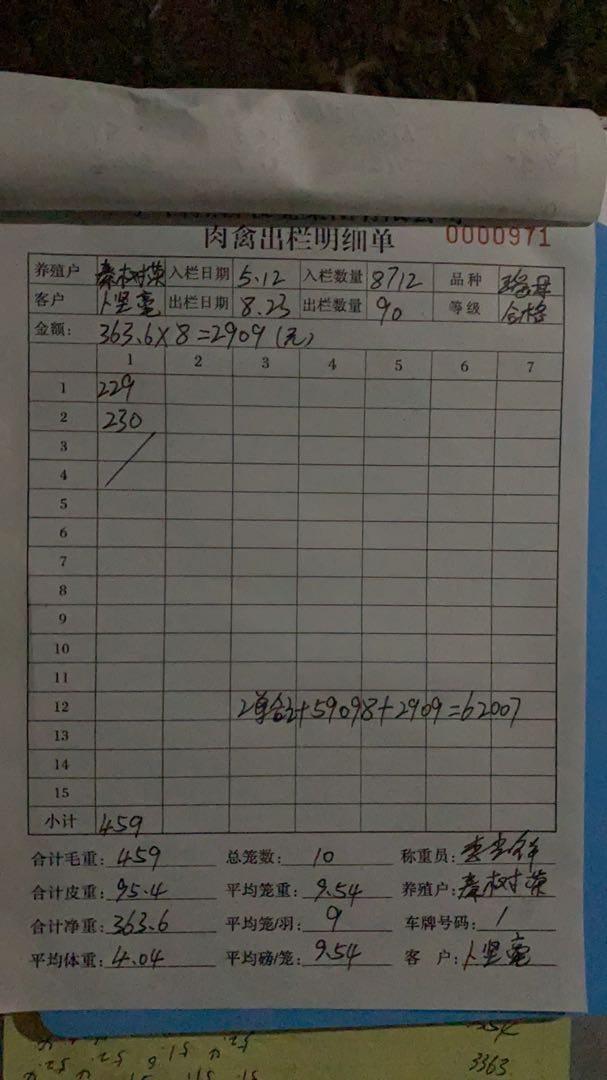 肉禽出栏明细单 0000971
养殖户 秦树荣 入栏日期 5.12 入栏数量 8712 品种
客户 卜坚毫 出栏日期 8.23 出栏数量 90 等级 合格
金额: 363.6×8=2909(元)
1 2 3 4 5 6 7
1 229
2 230
3
4
5
6
7
8
9
10
11
12 2单合计59098+2909=62007
13
14
15
小计 459
合计毛重: 459 总笼数: 10 称重员:
合计皮重: 95.4 平均笼重: 9.54 养殖户: 秦树荣
合计净重: 363.6 平均笼/羽: 9 车牌号码: /
平均体重: 4.04 平均磅/笼: 9.54 客户: 卜坚毫
3363